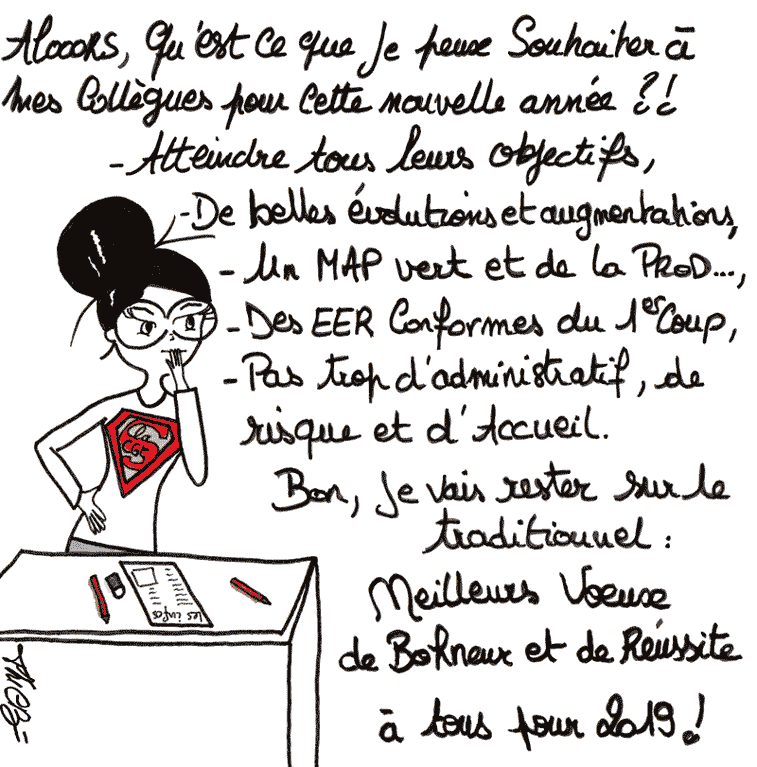 Alooors, Qu'est ce que je peux Souhaiter à
mes Collègues pour Cette nouvelle année ?!
- Atteindre tous leurs objectifs,
- De belles évolutions et augmentations,
- Un MAP vert et de la PROD...,
- Des EER Conformes du 1er Coup,
- Pas trop d'administratif, de
risque et d'Accueil.
Bon, je vais rester sur le
traditionnel :
Meilleurs Voeux
de Bohneur et de Réussite
à tous pour 2019 !
la
CGS
les infos